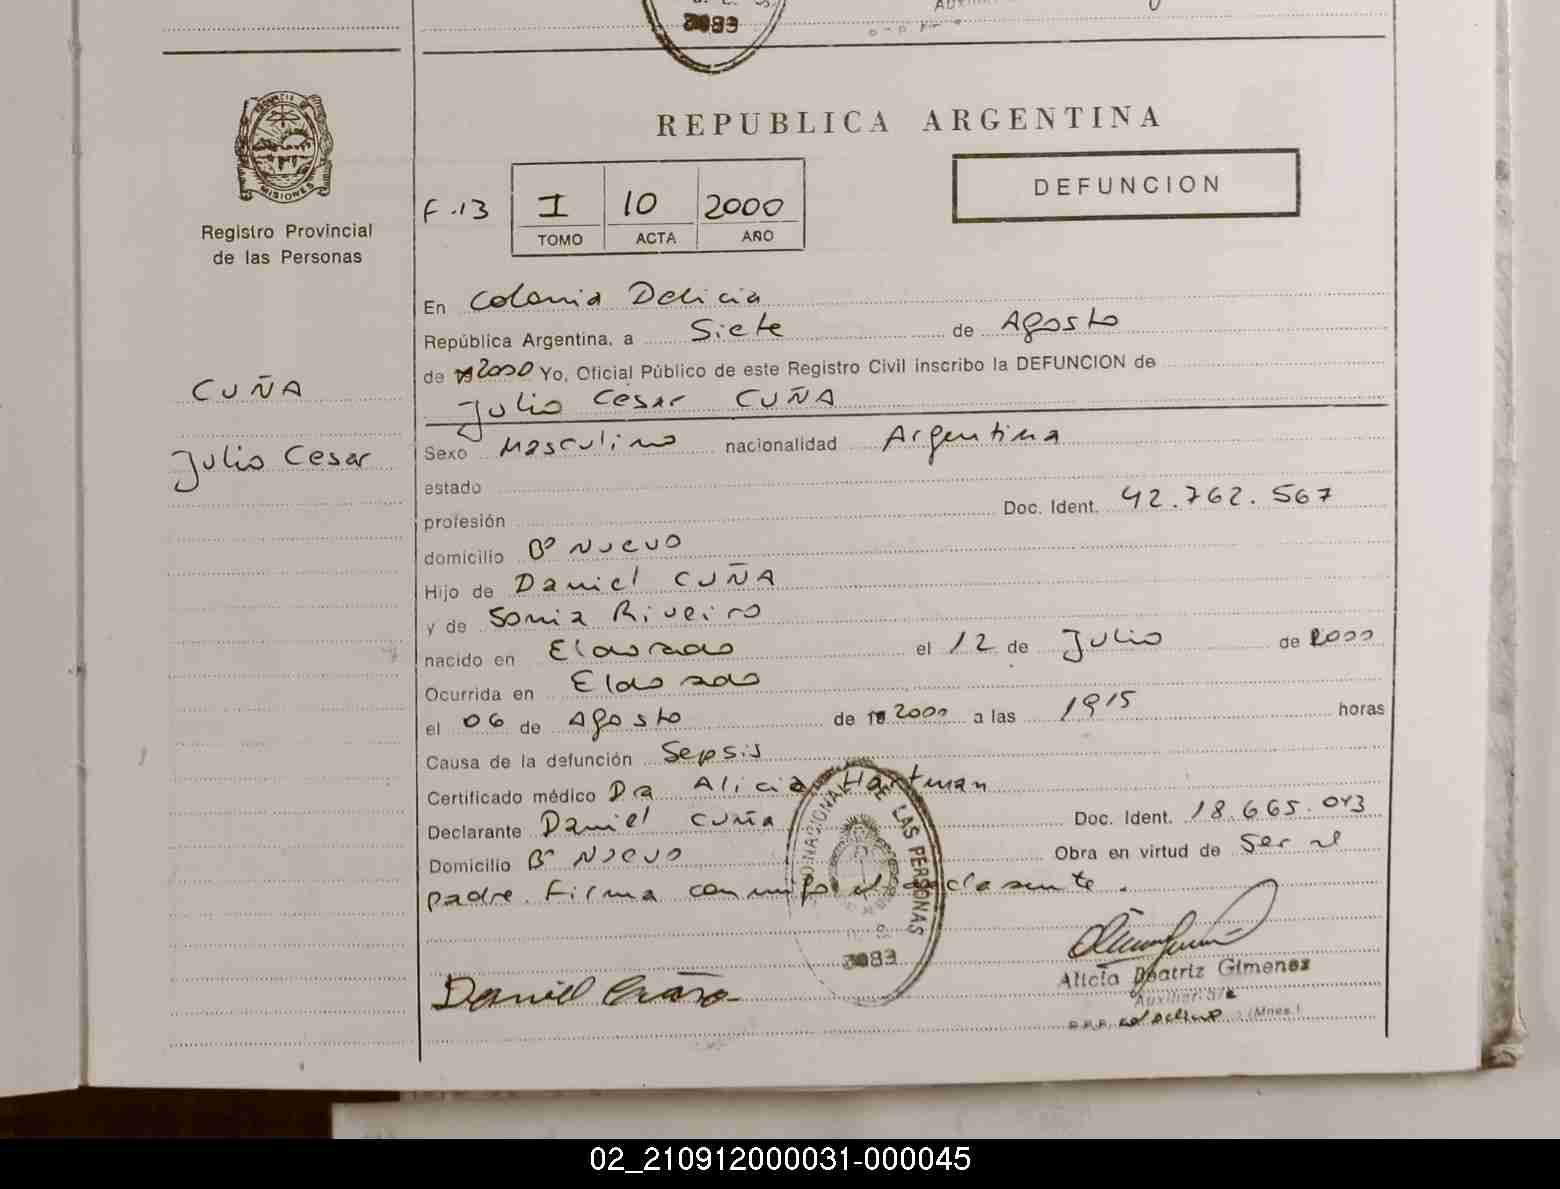 3083
REPUBLICA ARGENTINA
MISIONES
Registro Provincial
de las Personas
F.13
I 10 2000
TOMO ACTA AÑO
DEFUNCION
CUÑA
Julio Cesar
En Colonia Delicia
República Argentina, a Siete de Agosto
de 2000 Yo, Oficial Público de este Registro Civil inscribo la DEFUNCION de
Julio Cesar CUÑA
Sexo Masculino nacionalidad Argentina
estado
profesión Doc. Ident. 42.762.567
domicilio Bº Nuevo
Hijo de Daniel CUÑA
y de Sonia Riveiro
nacido en Eldorado el 12 de Julio de 2000
Ocurrida en Eldorado
el 06 de Agosto de 2000 a las 1915 horas
Causa de la defunción Sepsis
Certificado médico Dra Alicia Hartman
Declarante Daniel Cuña Doc. Ident. 18.665.043
Domicilio Bº Nuevo Obra en virtud de Ser el
padre. Firma conmigo el declarante.
NACIONAL DE LAS PERSONAS
3083
Daniel Cuña
Alicia Beatriz Gimenez
Auxiliar
(Mnes.)
02_210912000031-000045